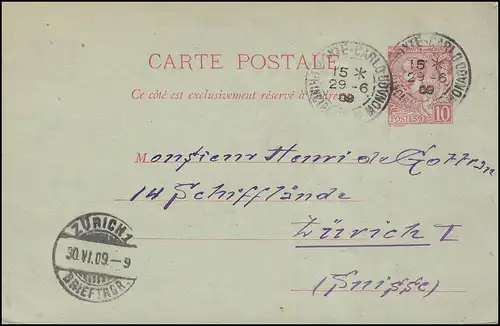 CARTE POSTALE
MONTE-CARLO
15 *
29 -6
09
MONTE-CARLO
15 *
29 -6
09
MONACO
Ce côté est exclusivement réservé à
POSTES 10
Monsieur Henri de
14 Schifflände
Zürich I
(Suisse)
ZÜRICH 1
30.VI.09.-9
BRIEFTRGR.